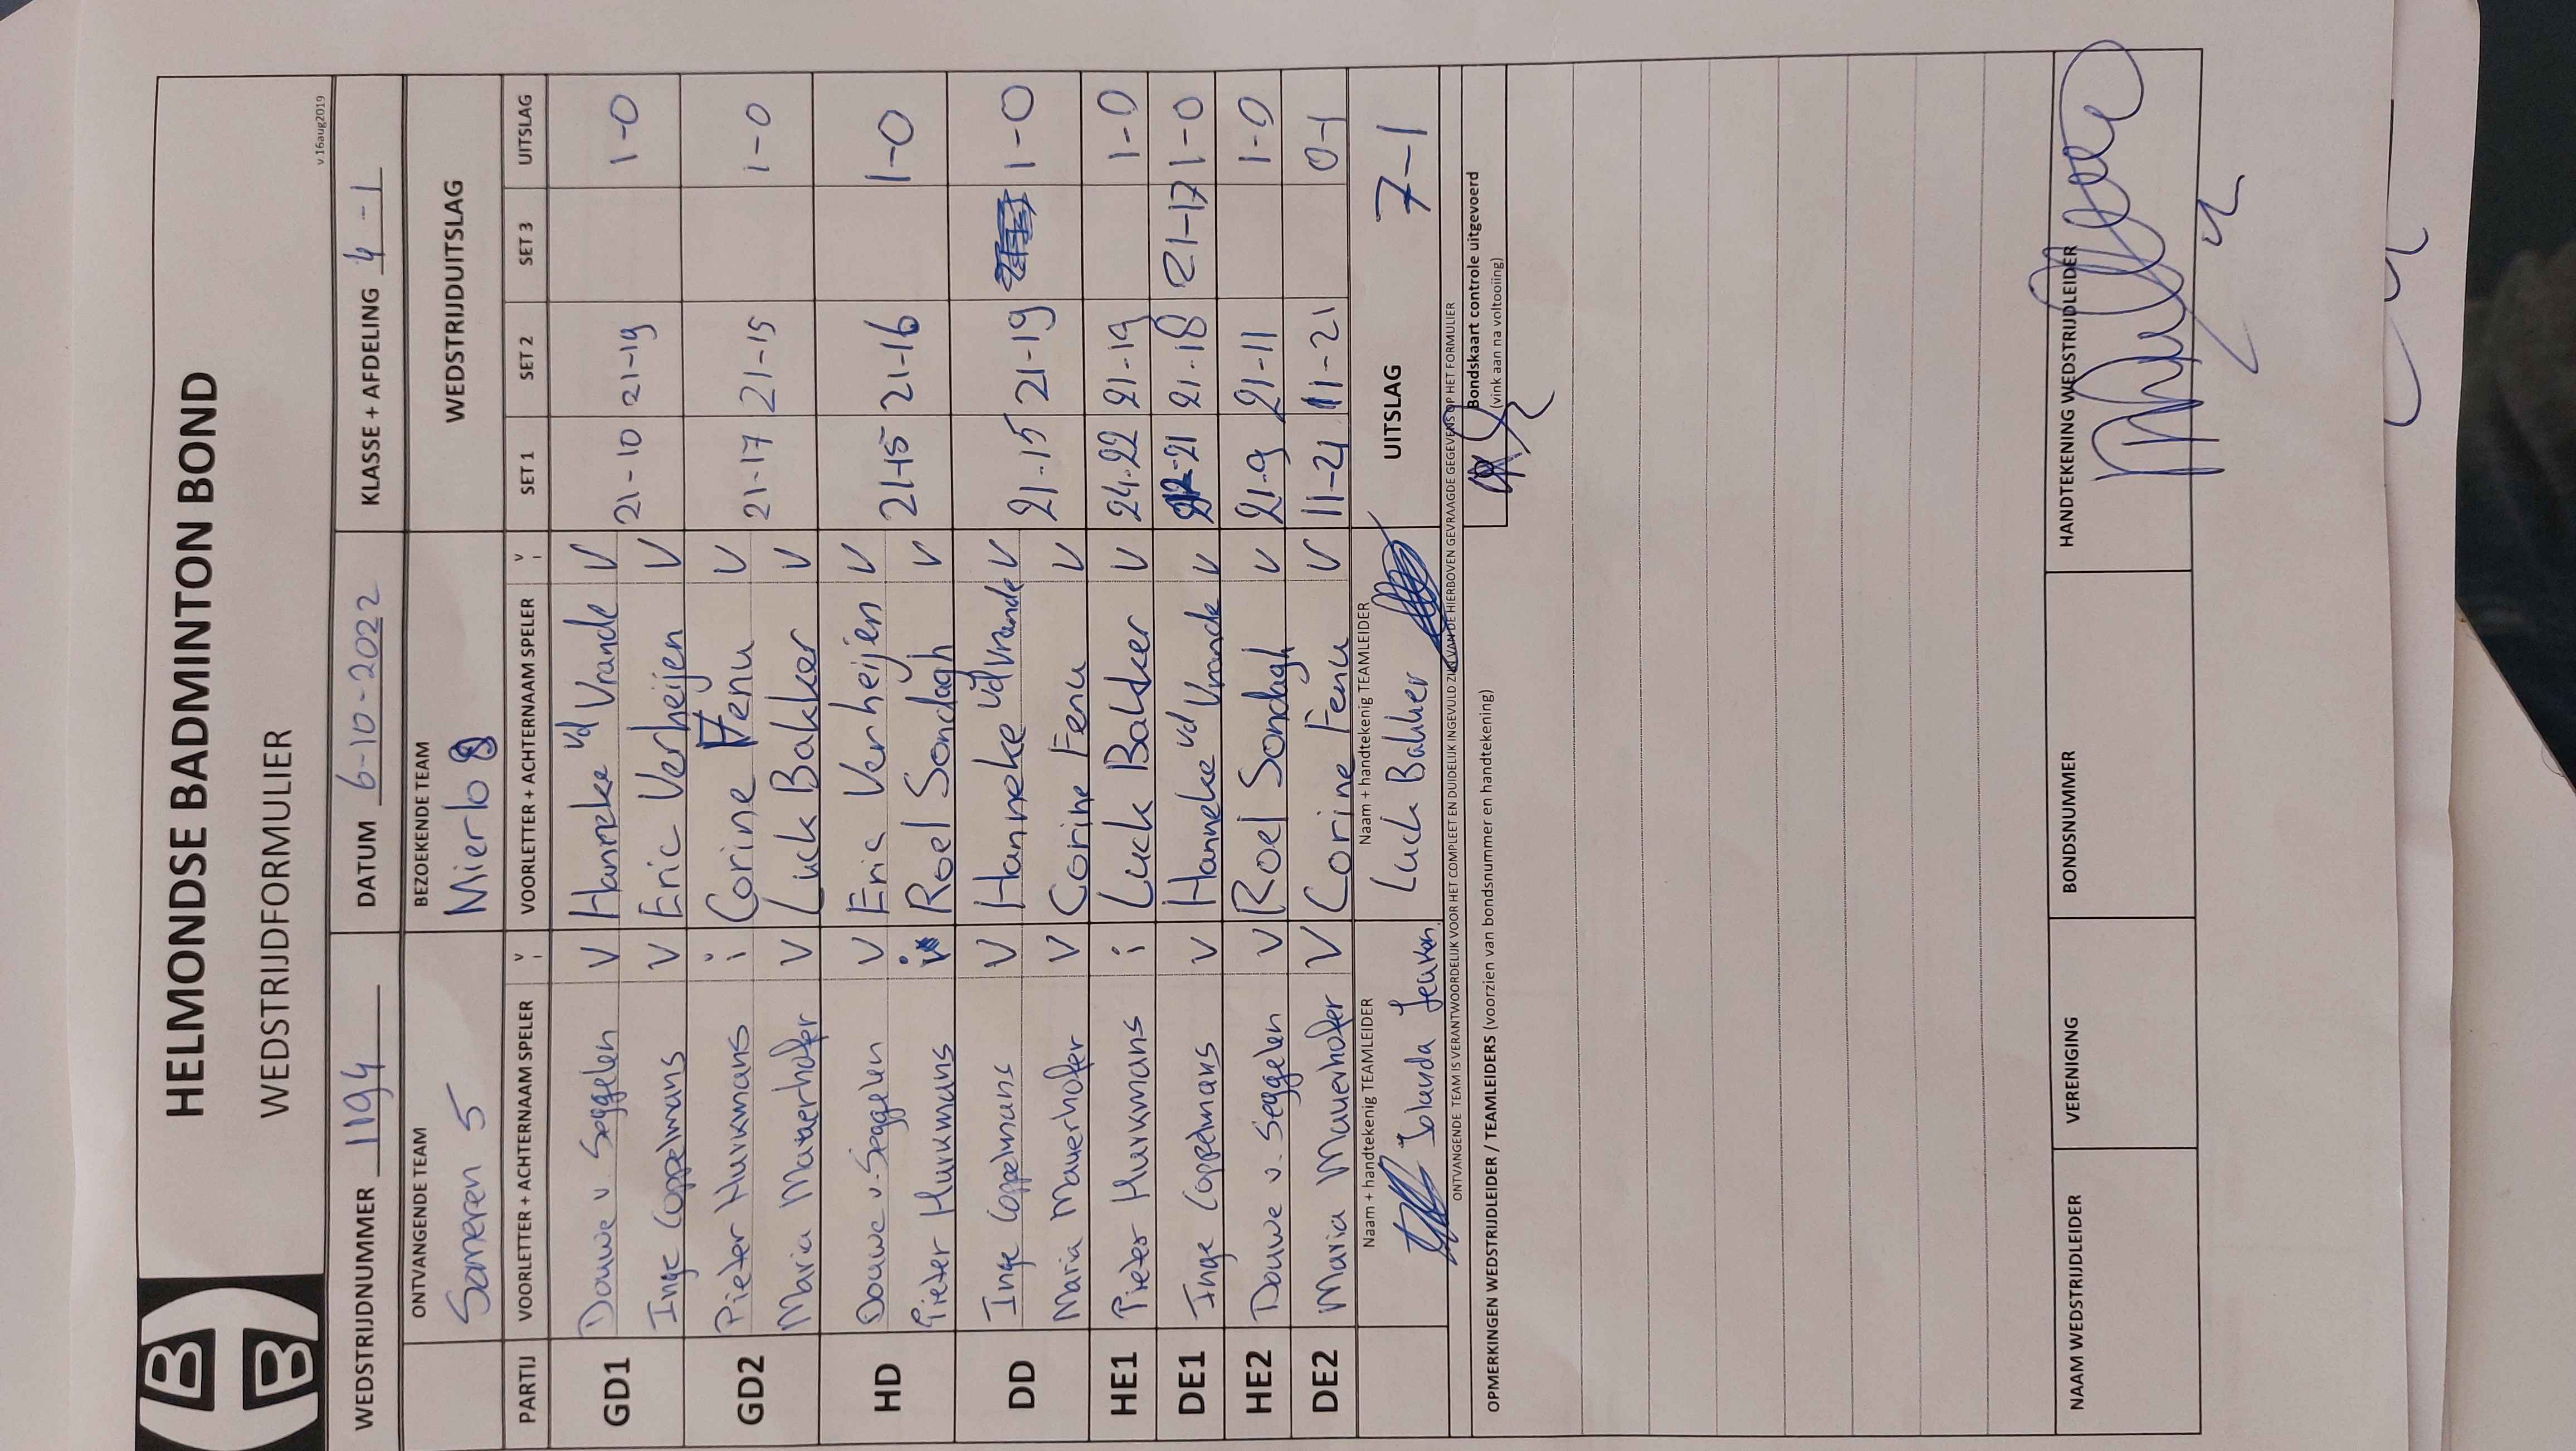 HELMONDSE BADMINTON BOND
WEDSTRIJDFORMULIER
v.16aug2019
WEDSTRIJDNUMMER 1194 DATUM 6-10-2022 KLASSE + AFDELING 4 - 1
ONTVANGENDE TEAM BEZOEKENDE TEAM WEDSTRIJDUITSLAG
Someren 5 Mierlo 8
PARTIJ VOORLETTER + ACHTERNAAM SPELER v i VOORLETTER + ACHTERNAAM SPELER v i SET 1 SET 2 SET 3 UITSLAG
GD1 Douwe v Seggelen V Hanneke vd Vrande V 21-10 21-19 1-0
Inge Coppelmans V Eric Verheijen V
GD2 Pieter Hurkmans i Corine Fenu V 21-17 21-15 1-0
Maria Mauerhofer V Luck Bakker V
HD Douwe v. Seggelen V Eric Verheijen V 21-15 21-16 1-0
Pieter Hurkmans i Roel Sondagh V
DD Inge Coppelmans V Hanneke vd Vrande V 21-15 21-19 1-0
Maria Mauerhofer V Corine Fenu V
HE1 Pieter Hurkmans i Luck Bakker V 24-22 21-19 1-0
DE1 Inge Coppelmans V Hanneke vd Vrande V -21 21-18 21-17 1-0
HE2 Douwe v. Seggelen V Roel Sondagh V 21-9 21-11 1-0
DE2 Maria Mauerhofer V Corine Fenu V 11-21 11-21 0-1
Naam + handtekenig TEAMLEIDER Naam + handtekenig TEAMLEIDER UITSLAG 7-1
Jolanda Luck Bakker
ONTVANGENDE TEAM IS VERANTWOORDELIJK VOOR HET COMPLEET EN DUIDELIJK INGEVULD ZIJN VAN DE HIERBOVEN GEVRAAGDE GEGEVENS OP HET FORMULIER
OPMERKINGEN WEDSTRIJDLEIDER / TEAMLEIDERS (voorzien van bondsnummer en handtekening) Bondskaart controle uitgevoerd
(vink aan na voltooiing)
NAAM WEDSTRIJDLEIDER VERENIGING BONDSNUMMER HANDTEKENING WEDSTRIJDLEIDER